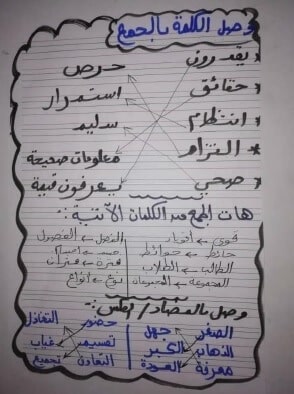 وصل الكلمة بالجميع
يقدرون حرص
حقائق استمرار
انتظام سليم
التزام معلومات صحيحة
صحي يعرفون قيمة
هات الجمع من الكلمات الآتية:
قوي ← أقوياء الفصل ← الفصول
حائط ← حوائط
الطالب ← الطلاب فترة ← فترات
المجموعة ← المجموعات نوع ← أنواع
وصل بالمضاد / اعكس:
الصغر جهل حضور التفاؤل
الذهاب الكبر تقسيم غياب
معرفة العودة التعاون تجميع